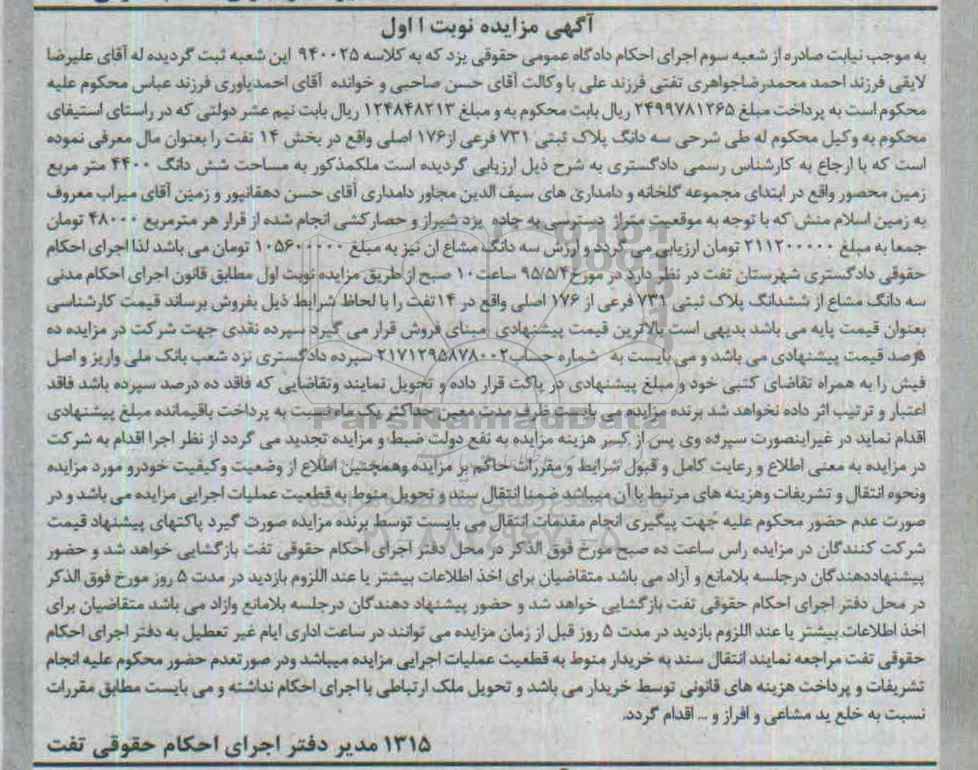 آگهی مزایده نوبت ا اول
به موجب نیابت صادره از شعبه سوم اجرای احکام دادگاه عمومی حقوقی یزد که به کلاسه ۹۴۰۰۲۵ این شعبه ثبت گردیده له آقای علیرضا
لایقی فرزند احمد محمدرضاجواهری تفتی فرزند علی با وکالت آقای حسن صاحبی و خوانده آقای احمدیاوری فرزند عباس محکوم علیه
محکوم است به پرداخت مبلغ ۲۴۹۹۷۸۱۲۶۵ ریال بابت محکوم به و مبلغ ۱۲۴۸۴۸۲۱۳ ریال بابت نیم عشر دولتی که در راستای استیفای
محکوم به وکیل محکوم له طی شرحی سه دانگ پلاک ثبتی ۷۳۱ فرعی از۱۷۶ اصلی واقع در بخش ۱۴ تفت را بعنوان مال معرفی نموده
است که با ارجاع به کارشناس رسمی دادگستری به شرح ذیل ارزیابی گردیده است ملکمذکور به مساحت شش دانگ ۴۴۰۰ متر مربع
زمین محصور واقع در ابتدای مجموعه گلخانه و دامداری های سیف الدین مجاور دامداری آقای حسن دهقانپور و زمین آقای میراب معروف
به زمین اسلام منش که با توجه به موقعیت متراژ دسترسی به جاده یزد شیراز و حصارکشی انجام شده از قرار هر مترمربع ۴۸۰۰۰ تومان
جمعا به مبلغ ۲۱۱۲۰۰۰۰۰ تومان ارزیابی می گردد و ارزش سه دانگ مشاع ان نیز به مبلغ ۱۰۵۶۰۰۰۰۰ تومان می باشد لذا اجرای احکام
حقوقی دادگستری شهرستان تفت در نظر دارد در مورخ ۹۵/۵/۴ ساعت ۱۰ صبح از طریق مزایده نوبت اول مطابق قانون اجرای احکام مدنی
سه دانگ مشاع از ششدانگ پلاک ثبتی ۷۳۱ فرعی از ۱۷۶ اصلی واقع در ۱۴ تفت را با لحاظ شرایط ذیل بفروش برساند قیمت کارشناسی
بعنوان قیمت پایه می باشد بدیهی است بالاترین قیمت پیشنهادی مبنای فروش قرار می گیرد سپرده نقدی جهت شرکت در مزایده ده
درصد قیمت پیشنهادی می باشد و می بایست به شماره حساب ۲۱۷۱۲۹۵۸۷۸۰۰۲ سپرده دادگستری نزد شعب بانک ملی واریز و اصل
فیش را به همراه تقاضای کتبی خود و مبلغ پیشنهادی در پاکت قرار داده و تحویل نمایند وتقاضایی که فاقد ده درصد سپرده باشد فاقد
اعتبار و ترتیب اثر داده نخواهد شد برنده مزایده می بایست ظرف مدت معین حداکثر یک ماه نسبت به پرداخت باقیمانده مبلغ پیشنهادی
اقدام نماید در غیراینصورت سپرده وی پس از کسر هزینه مزایده به نفع دولت ضبط و مزایده تجدید می گردد از نظر اجرا اقدام به شرکت
در مزایده به معنی اطلاع و رعایت کامل و قبول شرایط و مقررات حاکم بر مزایده وهمچنین اطلاع از وضعیت وکیفیت خودرو مورد مزایده
ونحوه انتقال و تشریفات وهزینه های مرتبط با آن میباشد ضمنا انتقال سند و تحویل منوط به قطعیت عملیات اجرایی مزایده می باشد و در
صورت عدم حضور محکوم علیه جهت پیگیری انجام مقدمات انتقال می بایست توسط برنده مزایده صورت گیرد پاکتهای پیشنهاد قیمت
شرکت کنندگان در مزایده راس ساعت ده صبح مورخ فوق الذکر در محل دفتر اجرای احکام حقوقی تفت بازگشایی خواهد شد و حضور
پیشنهاددهندگان درجلسه بلامانع و آزاد می باشد متقاضیان برای اخذ اطلاعات بیشتر یا عند اللزوم بازدید در مدت ۵ روز مورخ فوق الذکر
در محل دفتر اجرای احکام حقوقی تفت بازگشایی خواهد شد و حضور پیشنهاد دهندگان درجلسه بلامانع وازاد می باشد متقاضیان برای
اخذ اطلاعات بیشتر یا عند اللزوم بازدید در مدت ۵ روز قبل از زمان مزایده می توانند در ساعت اداری ایام غیر تعطیل به دفتر اجرای احکام
حقوقی تفت مراجعه نمایند انتقال سند به خریدار منوط به قطعیت عملیات اجرایی مزایده میباشد ودر صورتعدم حضور محکوم علیه انجام
تشریفات و پرداخت هزینه های قانونی توسط خریدار می باشد و تحویل ملک ارتباطی با اجرای احکام نداشته و می بایست مطابق مقررات
نسبت به خلع ید مشاعی و افراز و ... اقدام گردد.
۱۳۱۵ مدیر دفتر اجرای احکام حقوقی تفت
ParsNamadData